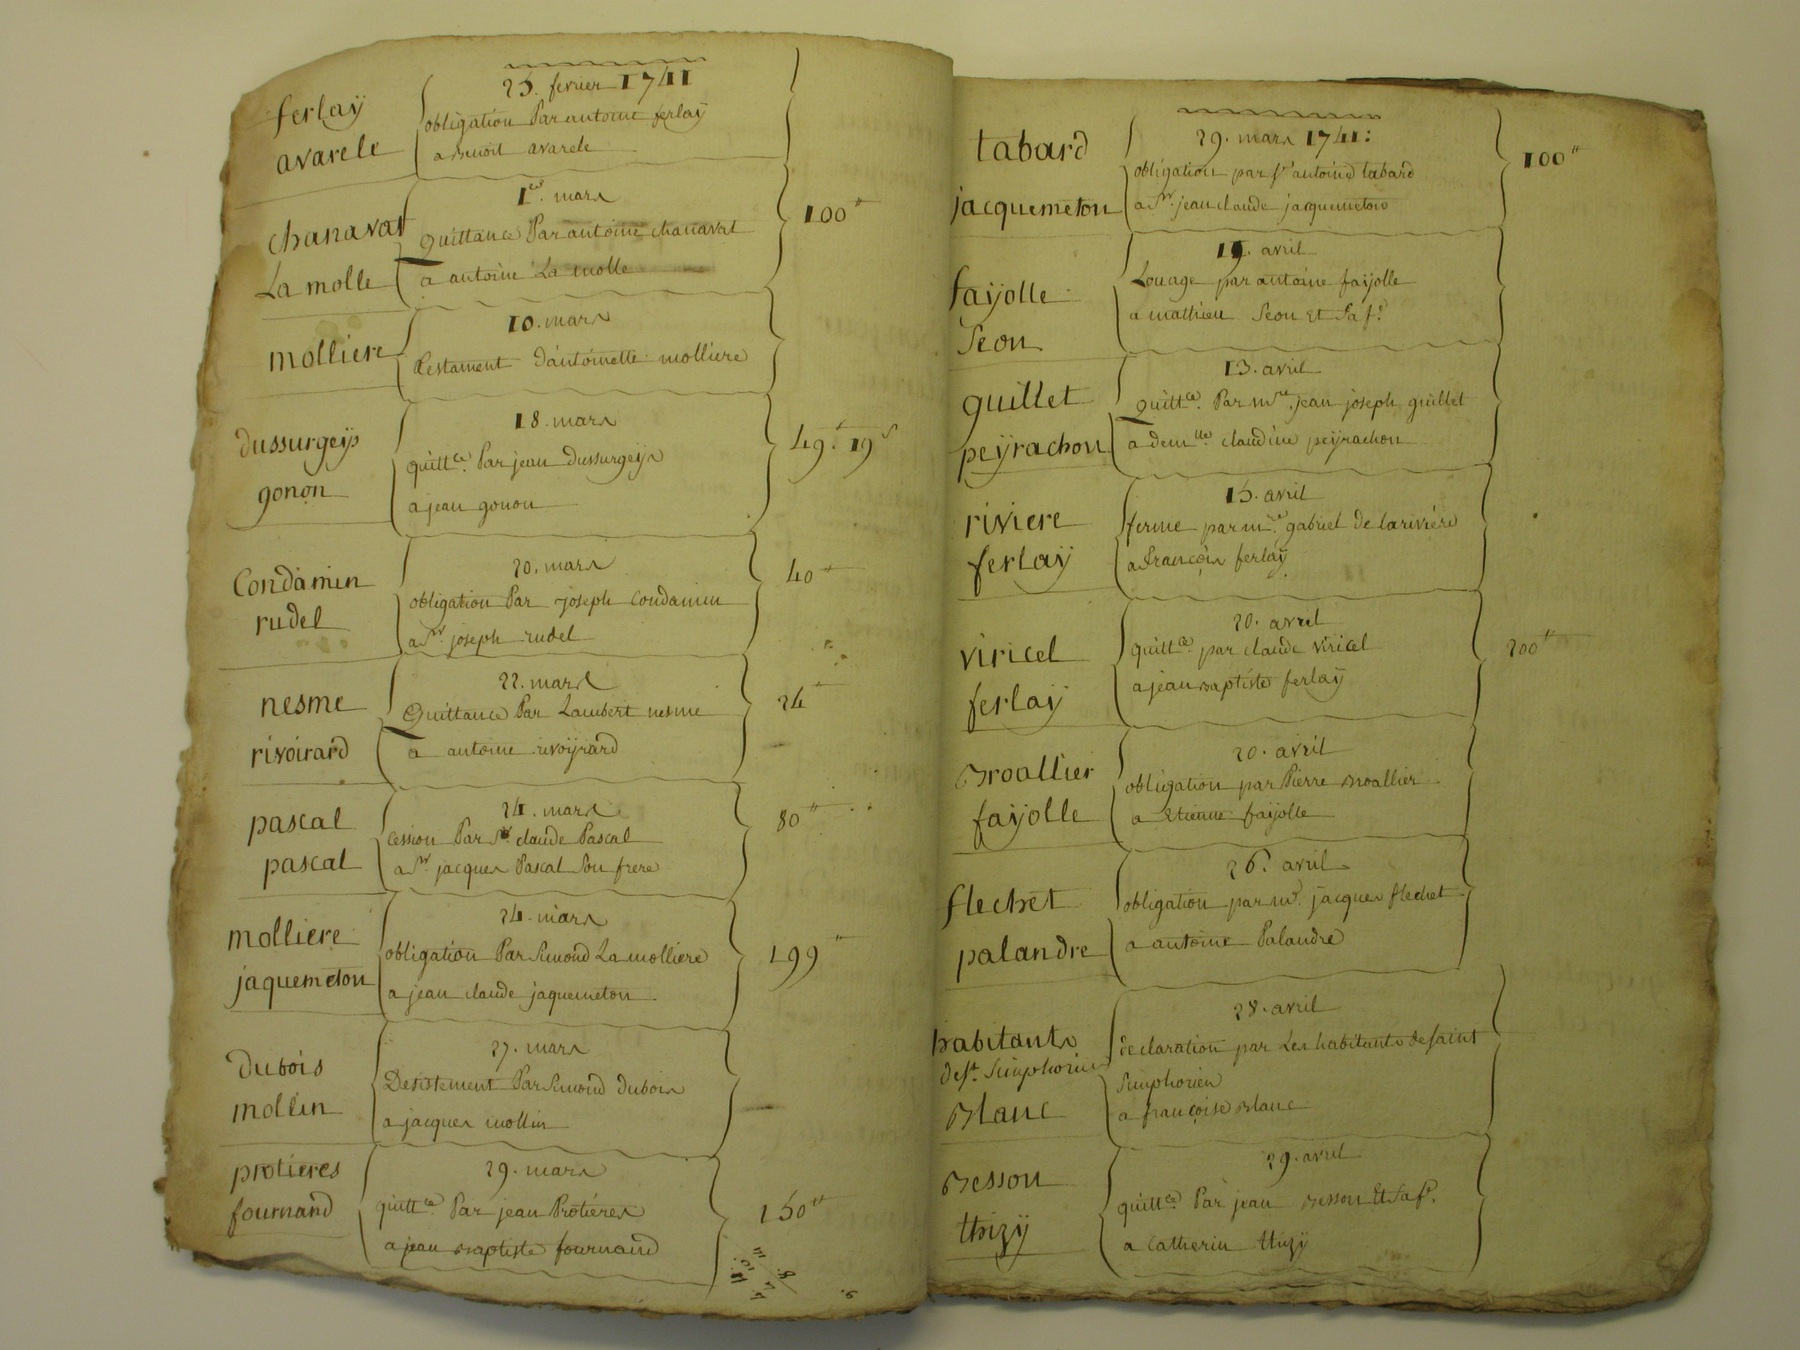 25. fevrier 1741
ferlaÿ
avarele
obligation Par antoine ferlaÿ
a Benoit avarele
1er. mars
chanavat
La molle
Quittance Par antoine chanavat
a antoine La molle
100#
10. mars
molliere
Testament d'antoinette molliere
18. mars
dussurgeÿs
gonon
quittce. Par jean dussurgeÿs
a jean gonon
49# 19s
20. mars
Condamin
rudel
obligation Par joseph Condamin
a Sr. joseph rudel
40#
22. mars
nesme
rivoirard
Quittance Par Lambert nesme
a antoine rivoÿrard
24#
24. mars
pascal
pascal
cession Par Sr claude Pascal
a Sr. jacques Pascal Son frere
80#
24. mars
molliere
jaquemeton
obligation Par Simond La molliere
a jean claude jaquemeton
199#
27. mars
dubois
mollin
Desistement Par Simond dubois
a jacques mollin
29. mars
protieres
fournand
quittce. Par jean Protières
a jean Baptiste fournand
150#
29. mars 1741:
tabard
jacquemeton
obligation par Sr antoine tabard
a Sr. jean claude jacquemeton
100#
avril
faÿolle
Seon
Louage par antoine faÿolle
a mathieu Seon Et Sa fe.
13. avril
guillet
peÿrachon
quittce. Par mre. jean joseph guillet
a demlle claudine peÿrachon
15. avril
riviere
ferlaÿ
ferme par mre. gabriel de la riviére
a françois ferlaÿ
20. avril
viricel
ferlaÿ
quittce. par claude viricel
a jean Baptiste ferlaÿ
200#
20. avril
Broallier
faÿolle
obligation par Pierre Broallier
a Etienne faÿolle
26. avril
flechet
palandre
obligation par mr. jacques flechet
a antoine Palandre
28. avril
habitants
de St. Simphorien
Blanc
declaration par Les habitants de Saint
Simphorien
a françoise Blanc
29. avril
Besson
thizÿ
quittce. Par jean Besson Et Sa fe.
a Catherin thizÿ